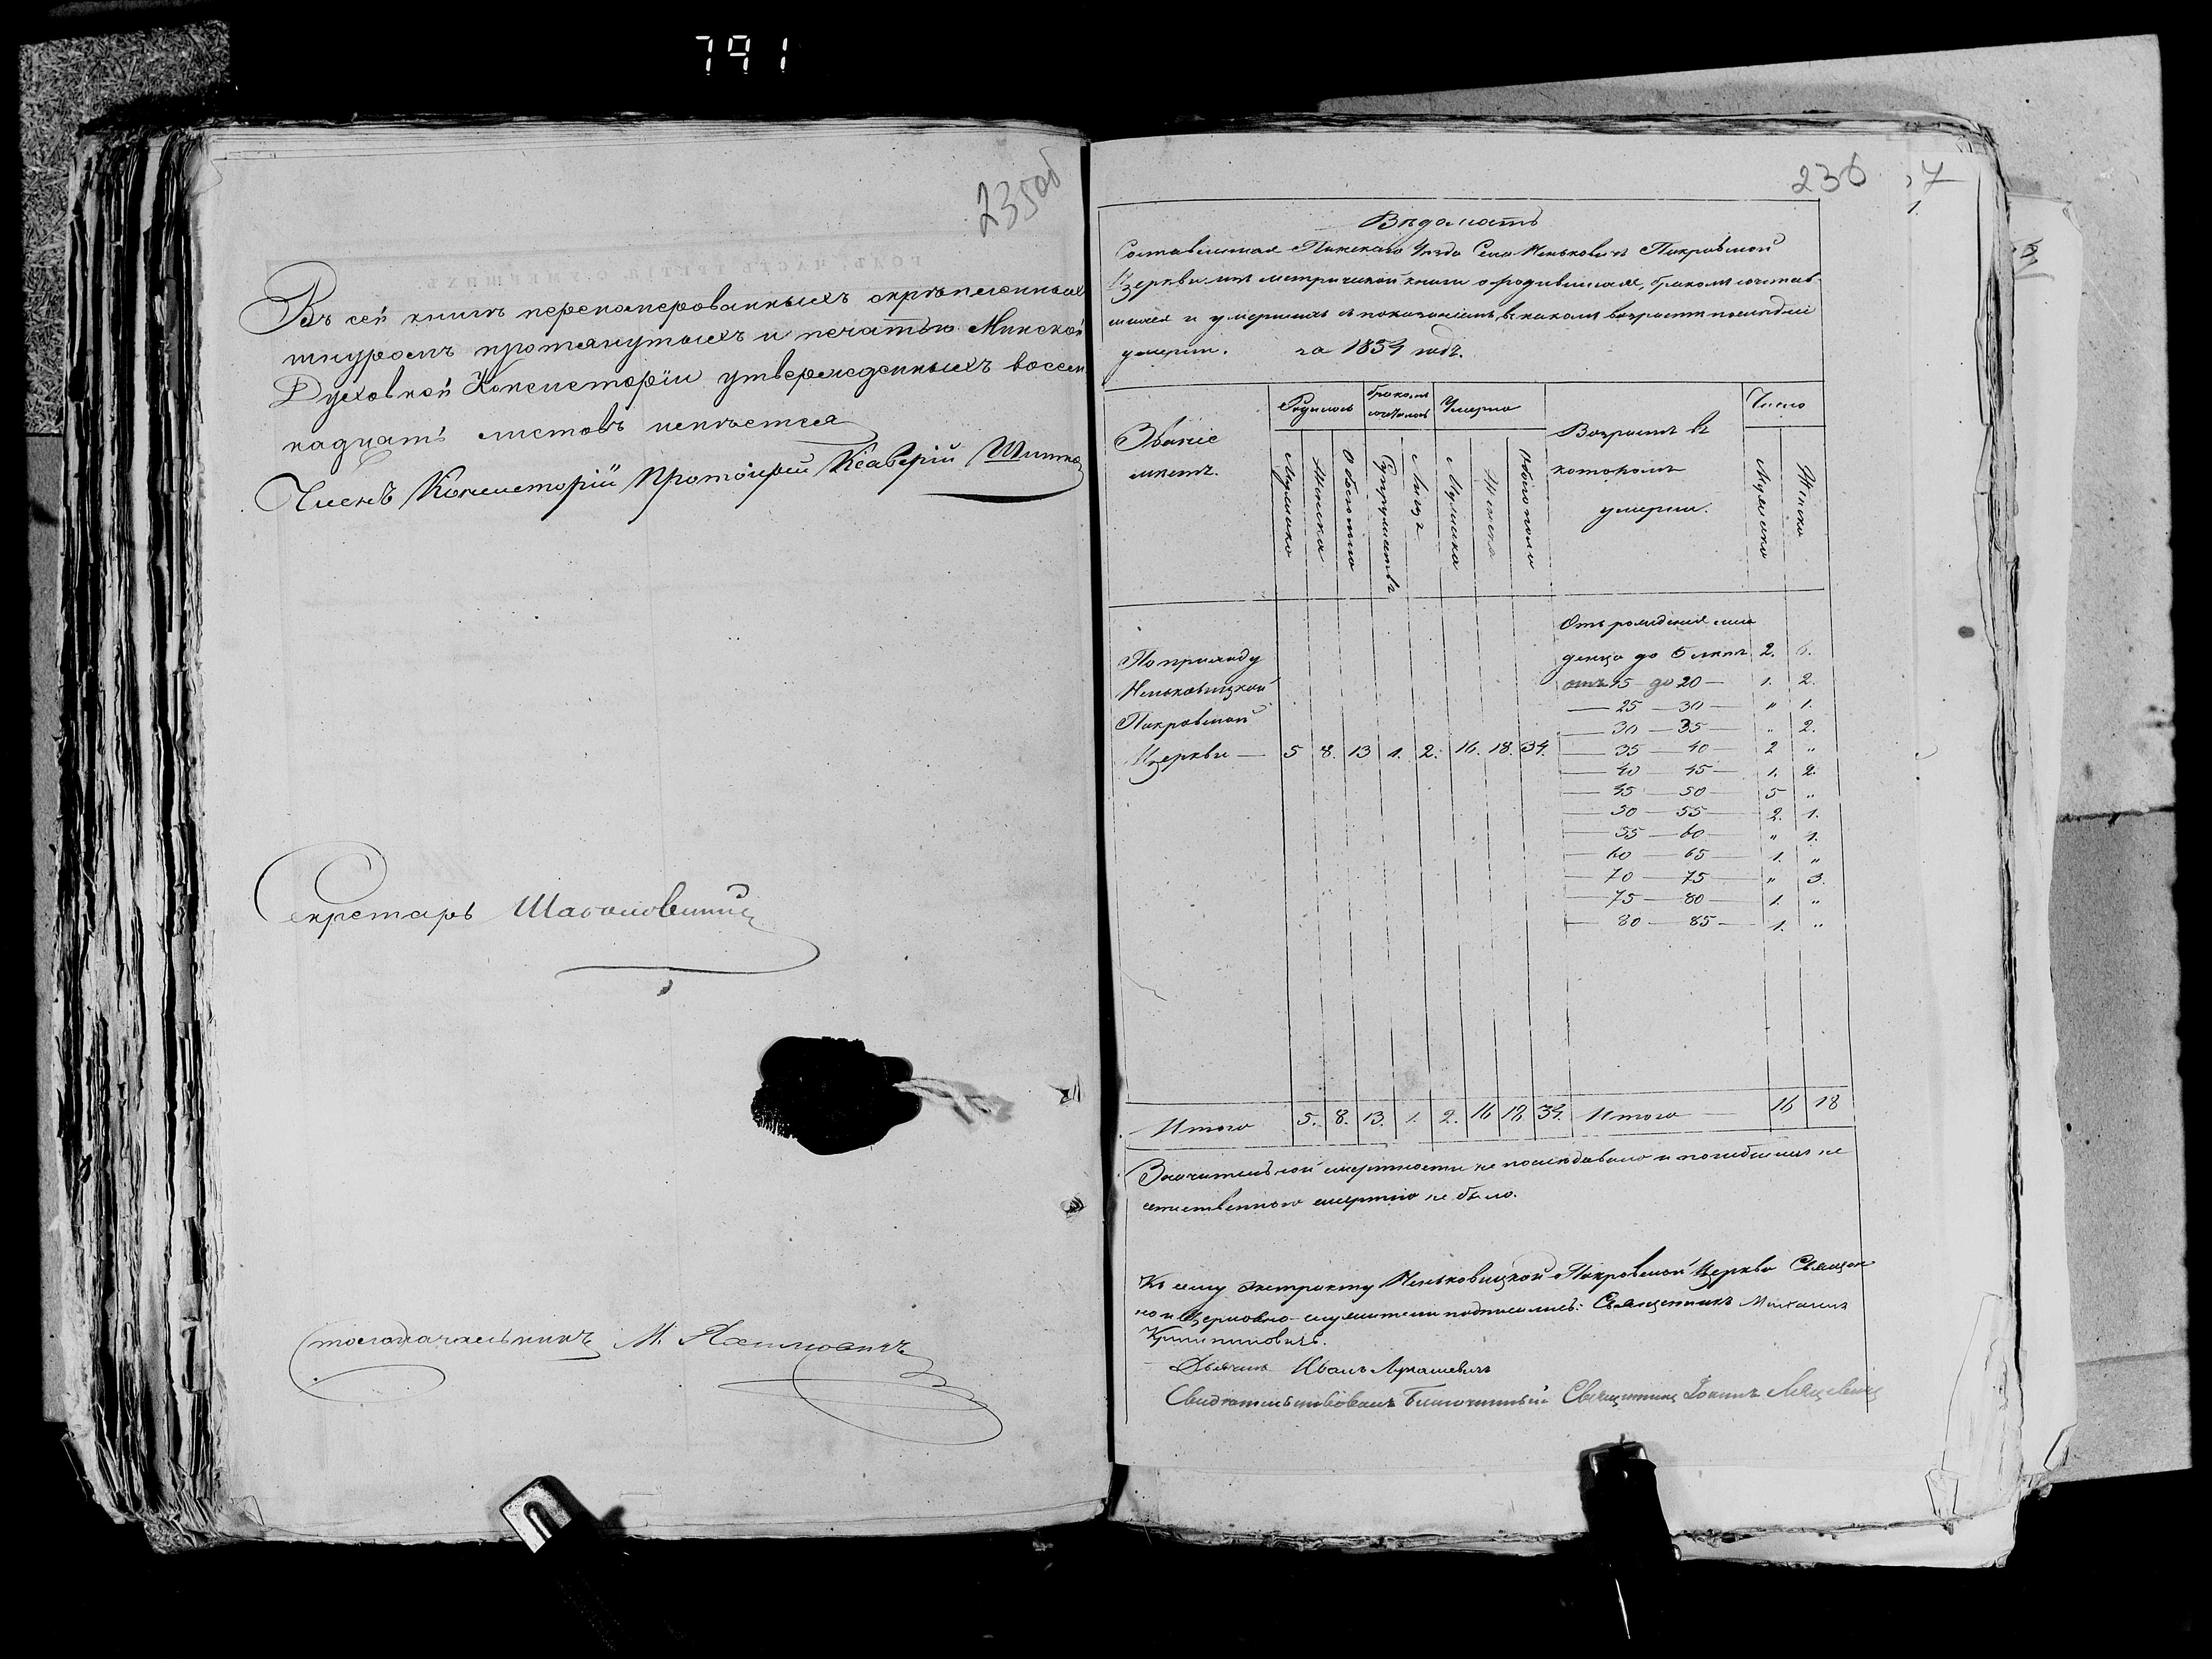 791
235об
Въ сей книгѣ переномерованныхъ скрѣпленныхъ
шнуромъ протянутыхъ и печатью Минской
Духовной Консисторіи утвержденныхъ восем
надцать листовъ имѣется
Членъ Консисторіи Протоіерей
Секретарь
Столоначальникъ М.
236
7
1.
Вѣдомость
Составленная Пинскаго Уѣзда Села Неньковичъ Покровской
Церкви изъ метрической книги о родившихся, бракомъ сочетав-
шихся и умершихъ съ показаніемъ, въ какомъ возрастѣ послѣдніе
умерли. за 1854 годъ.
Званіе
мѣстъ.
Родилось
бракомъ
сочеталось
Умерло
Возрастъ въ
котокомъ
умерли.
Число
Мужеска
Женска
Обоего пола
Супружествъ
Лицъ
Мужеска
Женска
Обоего пола
Мужеска
Женска
Отъ рожденія мла
денца до 5 лѣтъ 2. 6.
По приходу
Неньковицкой
Покровской
Церкви — 5 8. 13 1. 2. 16. 18. 34.
отъ 15 до 20 — 1. 2.
— 25 — 30 — " 1.
— 30 — 35 — " 2.
— 35 — 40 — 2 "
— 40 — 45 — 1. 2.
— 45 — 50 — 5 "
— 50 — 55 — 2. 1.
— 55 — 60 — " 1.
— 60 — 65 — 1. "
— 70 — 75 — " 3.
— 75 — 80 — 1. "
— 80 — 85 — 1. "
Итого 5. 8. 13. 1. 2. 16 18 34. Итого — 16 18
Значительной смертности не послѣдовало и погибшихъ не
естественною смертію не было.
Къ сему экстракту Неньковицкой Покровской Церкви Священ
но и Церковно-служители подписались: Священникъ Михаилъ
Дьячекъ Иванъ Лукашевичъ
Свидѣтельствовалъ Благочинный Священникъ Іоаннъ